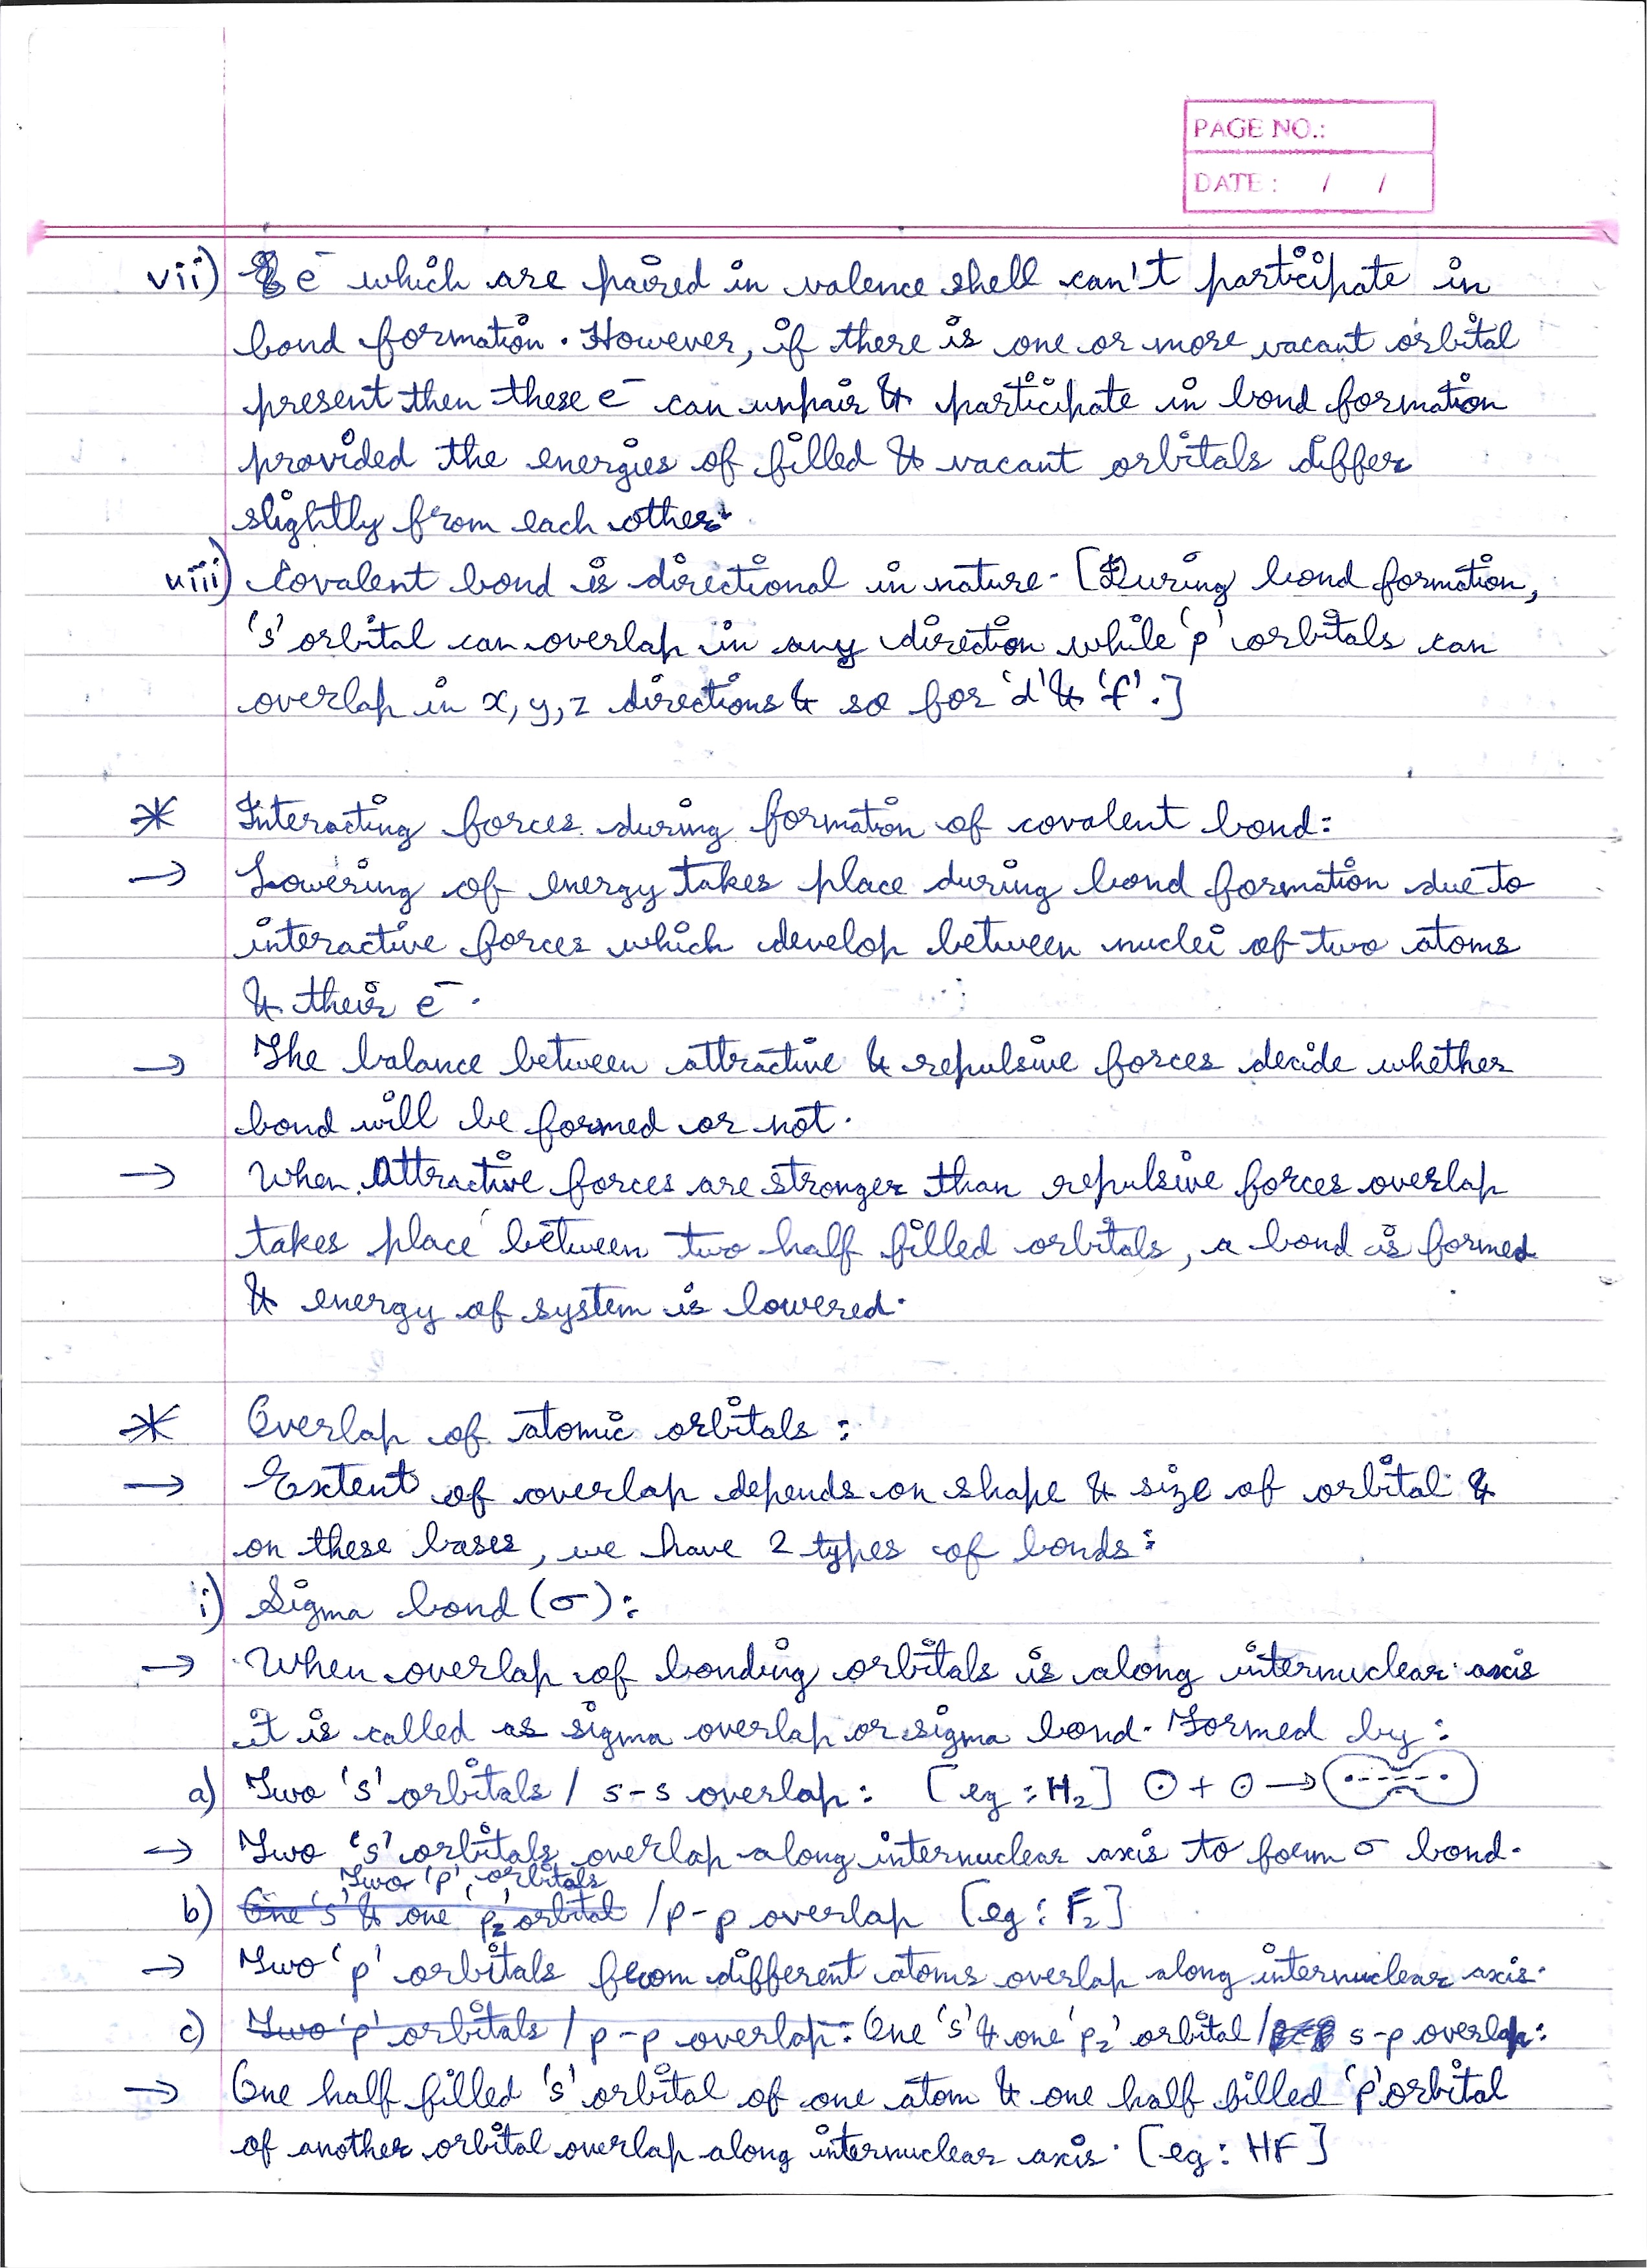 PAGE NO.:
DATE : / /
vii) e⁻ which are paired in valence shell can't participate in
bond formation. However, if there is one or more vacant orbital
present then these e⁻ can unpair & participate in bond formation
provided the energies of filled & vacant orbitals differ
slightly from each other.
viii) Covalent bond is directional in nature. [During bond formation,
's' orbital can overlap in any direction while 'p' orbitals can
overlap in x, y, z directions & so for 'd' & 'f'.]
* Interacting forces during formation of covalent bond:
→ Lowering of energy takes place during bond formation due to
interactive forces which develop between nuclei of two atoms
& their e⁻.
→ The balance between attractive & repulsive forces decide whether
bond will be formed or not.
→ When Attractive forces are stronger than repulsive forces overlap
takes place between two half filled orbitals, a bond is formed
& energy of system is lowered.
* Overlap of atomic orbitals :
→ Extent of overlap depends on shape & size of orbital &
on these bases, we have 2 types of bonds:
i) Sigma bond (σ):
→ When overlap of bonding orbitals is along internuclear axis
it is called as sigma overlap or sigma bond. Formed by:
a) Two 's' orbitals / s-s overlap: [eg : H₂] + →
→ Two 's' orbitals overlap along internuclear axis to form σ bond.
Two 'p' orbitals
b) One 's' & one 'pz' orbital / p-p overlap [eg : F₂]
→ Two 'p' orbitals from different atoms overlap along internuclear axis.
c) Two 'p' orbitals / p-p overlap: One 's' & one 'pz' orbital / s-p overlap:
→ One half filled 's' orbital of one atom & one half filled 'p' orbital
of another orbital overlap along internuclear axis. [eg : HF]